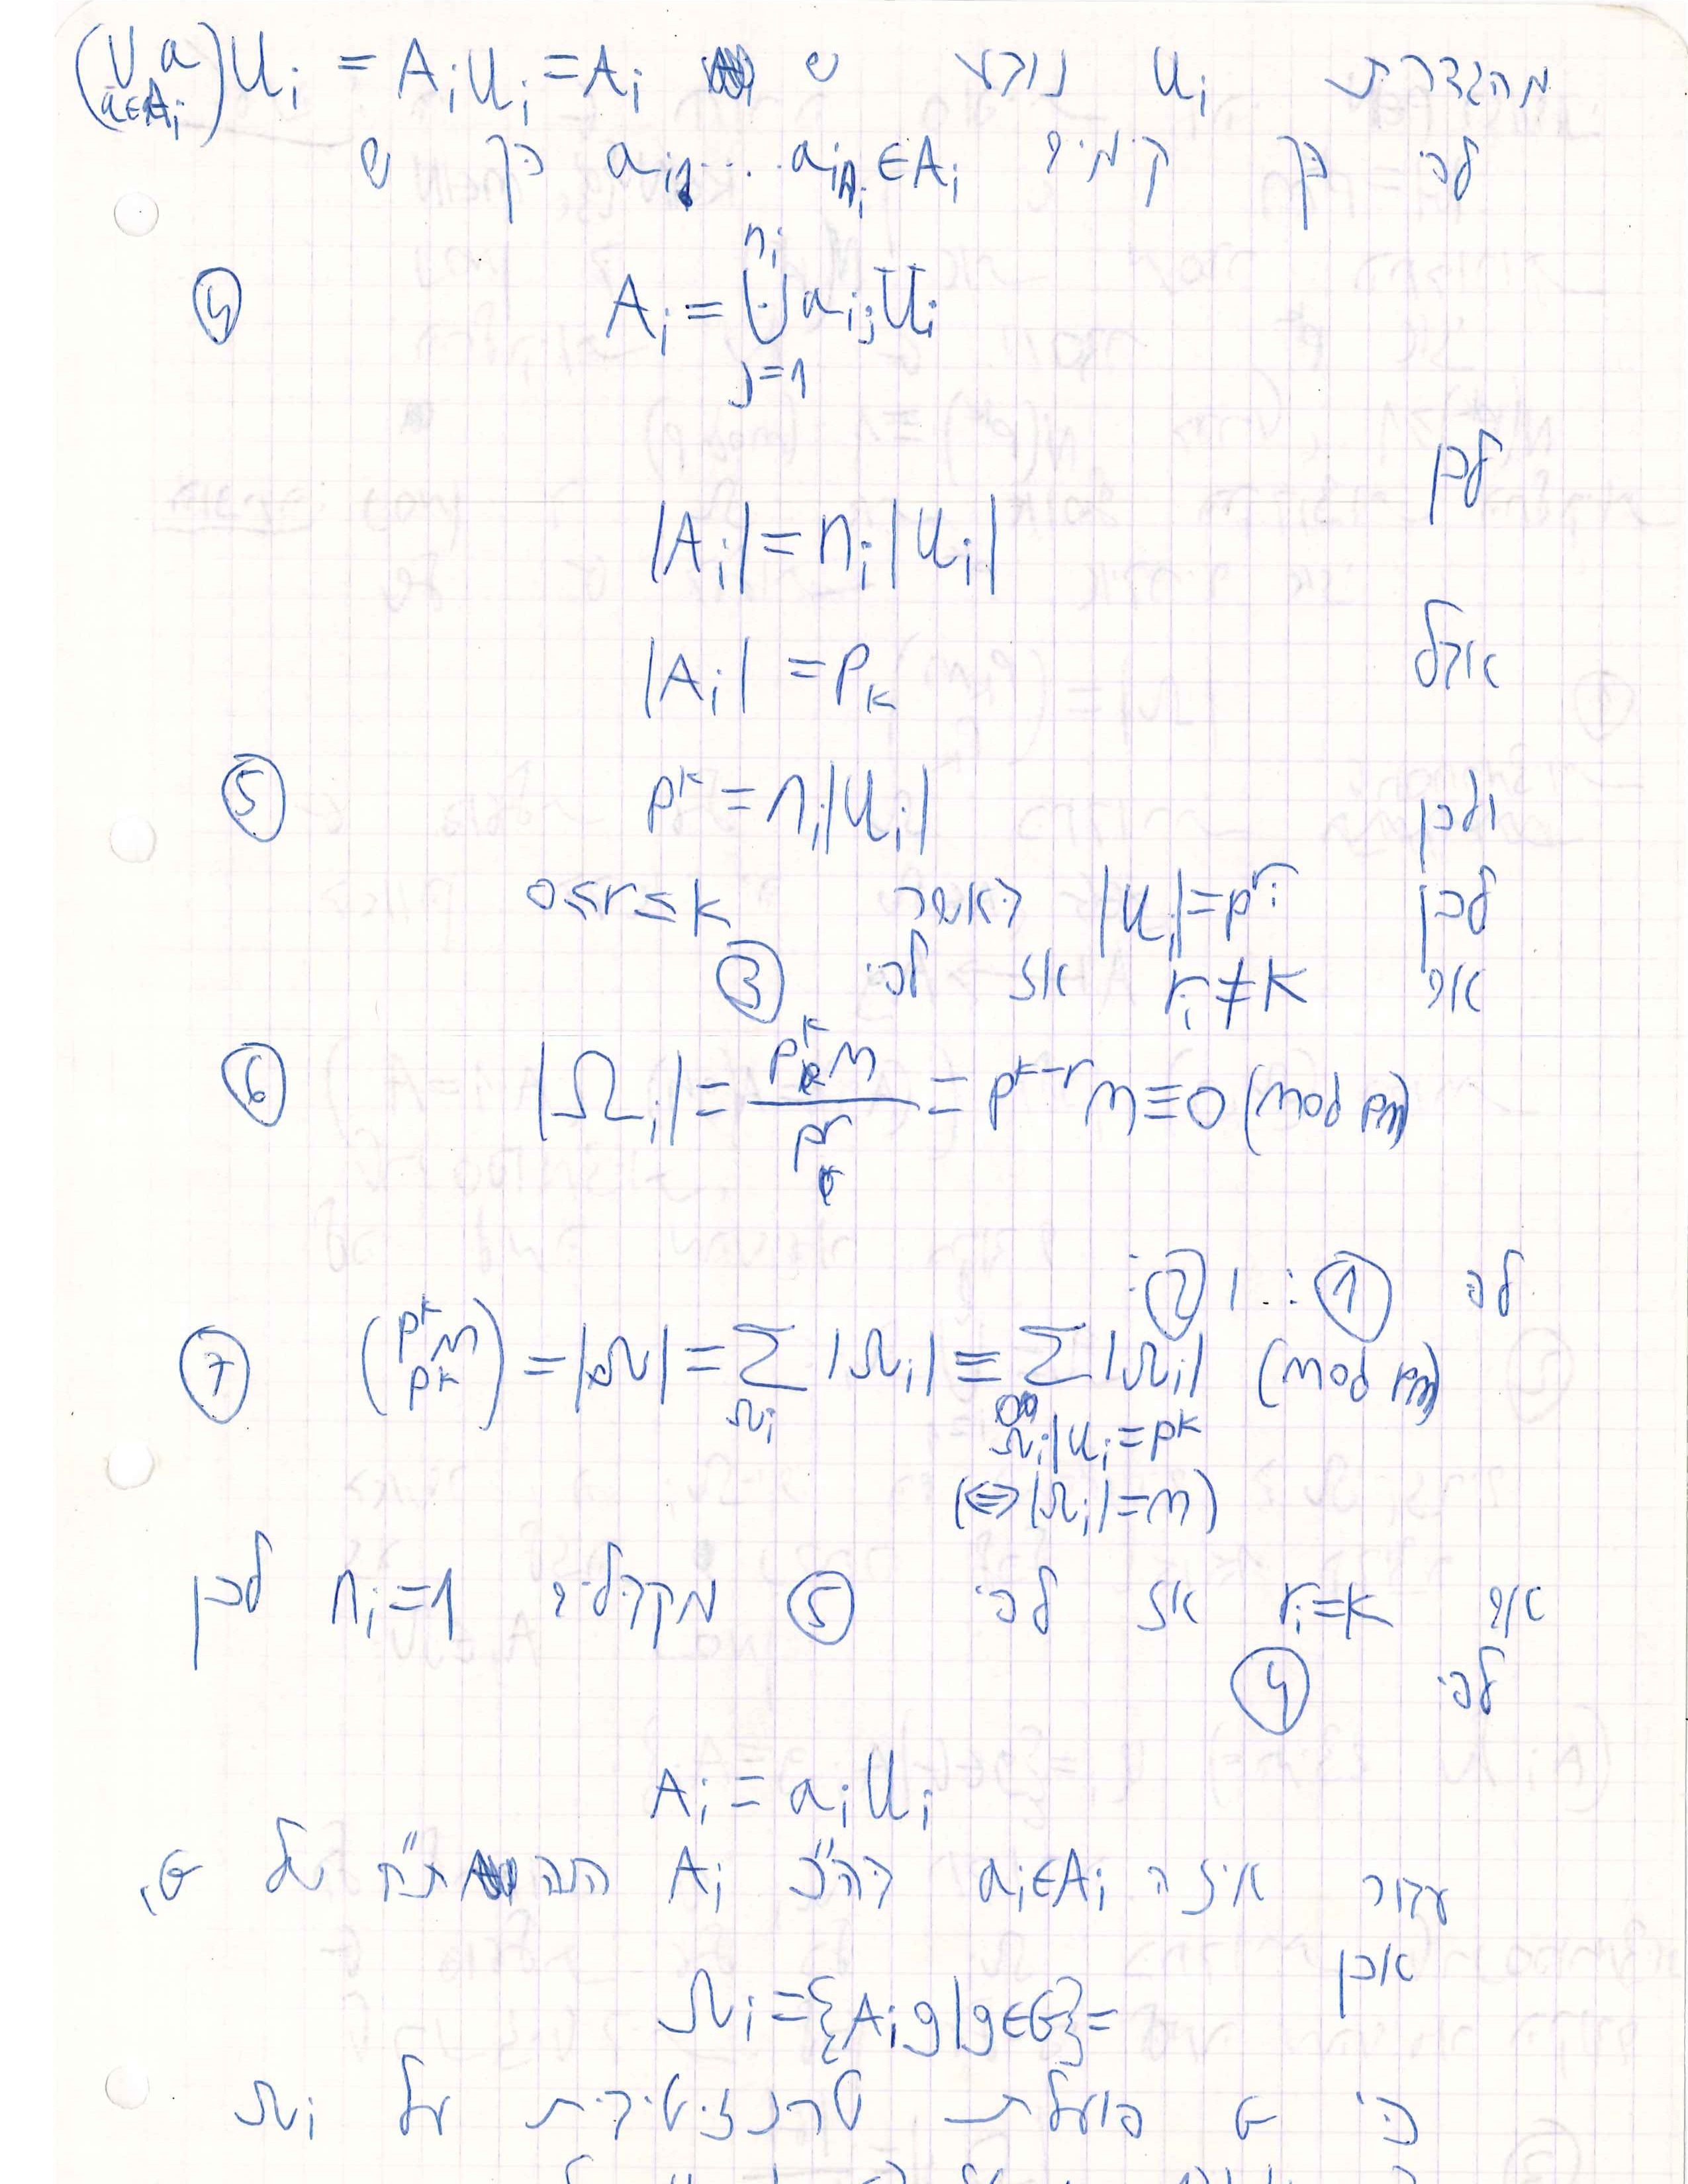 מהגדרת U_i נובע ש (⋃_{a∈A_i} a)U_i = A_iU_i = A_i
לפי כך קימים a_{i1}...a_{in_i}∈A_i כך ש
④ A_i = ⨃_{j=1}^{n_i} a_{ij}U_i
לכן
|A_i| = n_i|U_i|
אבל |A_i| = p_k
ולכן p^k = n_i|U_i| ⑤
לכן |U_i| = p^{r_i} כאשר 0≤r≤k
אם r_i≠k אז לפי ③
⑥ |Ω_i| = \frac{p^k m}{p^r} = p^{k-r}m ≡ 0 (mod pm)
לפי ① ו ②:
⑦ \binom{p^k m}{p^k} = |Ω| = Σ_{Ω_i} |Ω_i| ≡ Σ |Ω_i| (mod pm)
Ω_i|U_i = p^k
(⇔|Ω_i| = m)
אם r_i=k אז לפי ⑤ מקבלים n_i=1 לכן
לפי ④
A_i = a_iU_i
עבור איזה a_i∈A_i A_i הנה ת"ח של G,
אכן
Ω_i = {A_ig|g∈G} =
כי G פועלת טרנזיטיבית על Ω_i